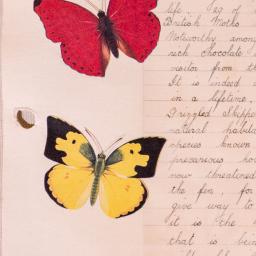 life. Leg of
British Moths
Noteworthy among
rich chocolate
visitor from th
It is indeed
in a lifetime.
Grizzled skipper
natural habita
species known
precarious ho
now threatened
the fen, for
give way to
it is the
that is bein